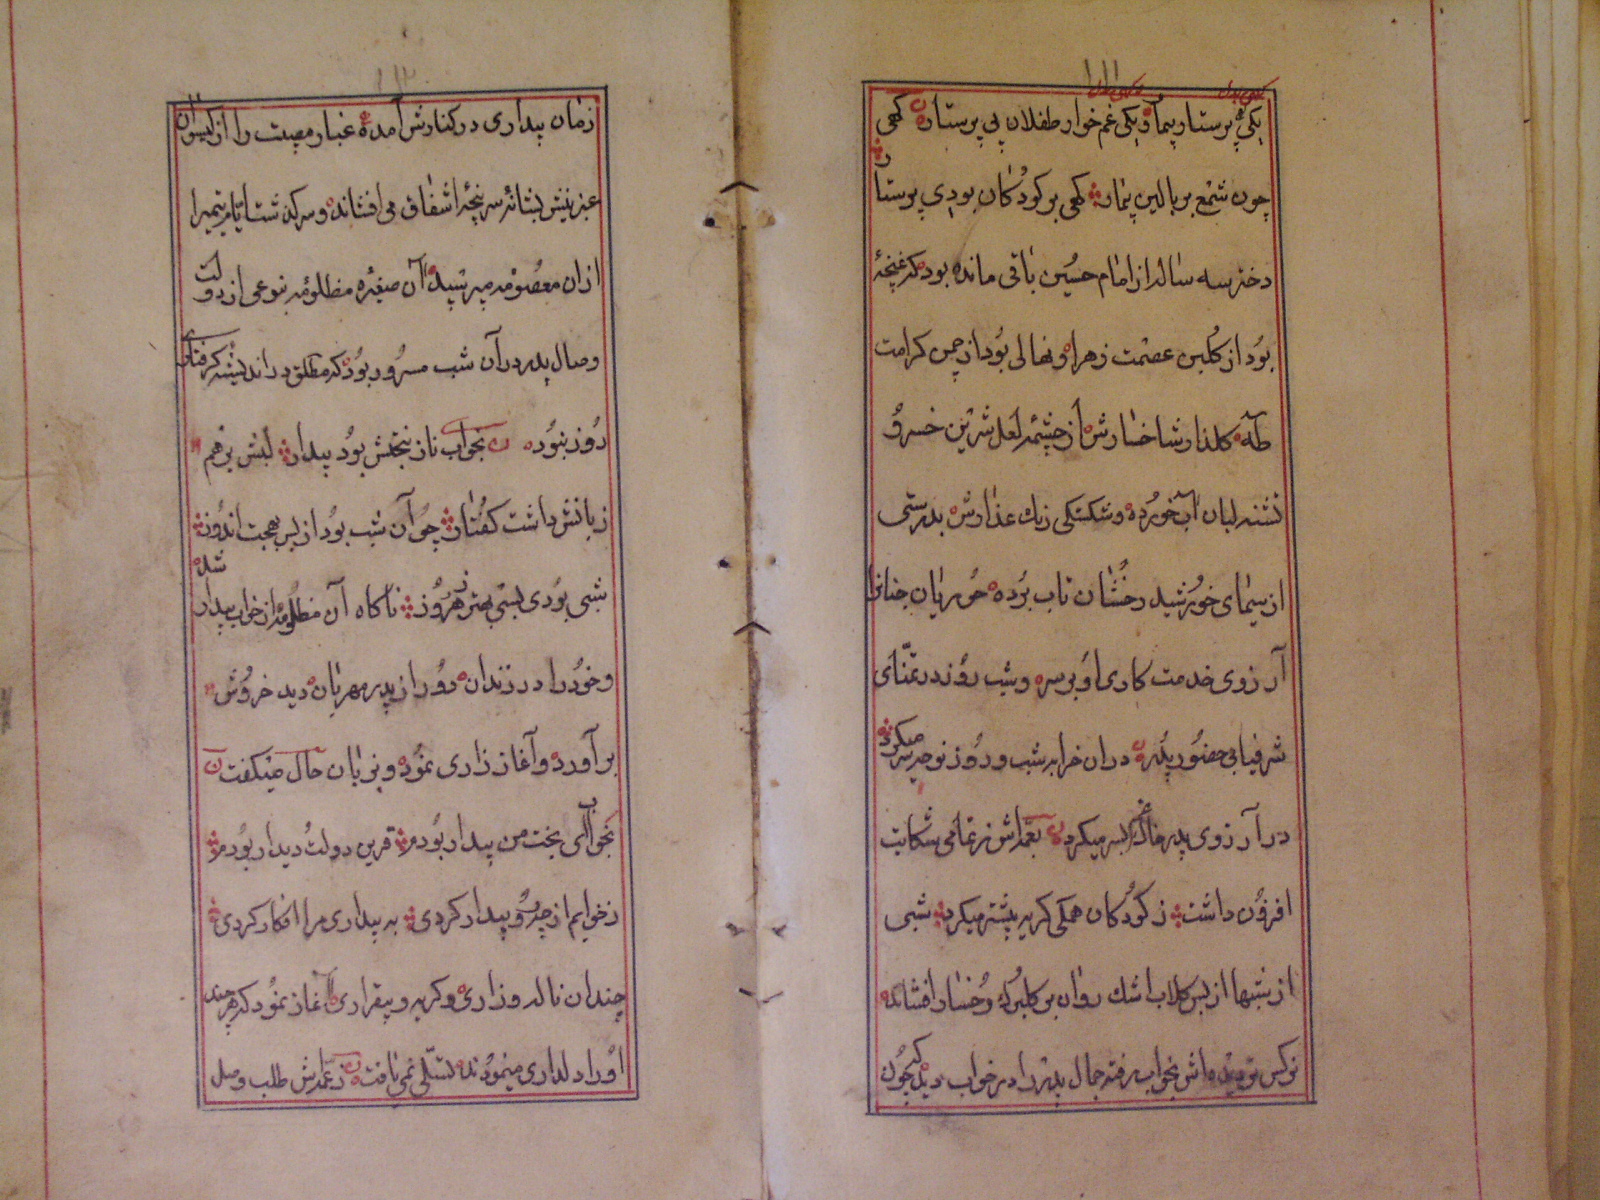 یکی پرستار بیمار و یکی غم خوار طفلان بی پرستار کهی
چون شمع بر بالین بیمار کهی بر کودکان بودی پرستار
دختر سه ساله از امام حسین باقی مانده بود که غنچهٔ
بود از کلبن عصمت زهرا و نهالی بود از چمن کرامت
طه کلذار شاخسارش از چشمه لعل شرین خسرو
تشنه لبان آب خورده و شکستکی رنك عذارش بدرستی
از سیمای خورشید رخشان تاب بوده حوریان جنانرا
آرزوی خدمت کاری او بر سر و شب روز در تمنّای
شرفیابی حضور پدر دران خرابه شب و روز نوحه سر میکرد
در آرزوی پدر خاك بسر میکرد بعمداش ز تمامی شکایت
افزون داشت ز کودکان همکی کریه بیشتر میکرد شبی
از شبها از بس کلاب اشك روان بر کلبرك رخسار افشانده
نرکس غمدیده اش بخواب رفته جمال پدر را در خواب دید که چون
زمان بیداری در کنارش آمده غبار مصیبت را از کیسوان
عنبرینش بشانه سر پنجهٔ اشفاق می افشاند و سرکذشت ایام یتیمیرا
ازان معصومه میپرسید آن صغیره مظلومه بنوعی از دولت
وصال پدر در آن شب مسرور بود که مطلق در اندیشه کرفتاری
روز نبود بخواب ناز بختش بود بیدار لبش بر هم
زبانش داشت کفتار چو آن شب بود از بس بهجت اندوز
شبی بودی بسی بهتر ز هر روز ناکاه آن مظلومه از خواب بیدار شده
و خود را در زندان و دور از پدر مهربان دید خروش
بر آورد و آغاز زاری نمود و بزبان حال میکفت
بخواب ای بخت من بیدار بودم قرین دولت دیدار بودم
ز خوابم از چه رو بیدار کردی به بیداری مرا افکار کردی
چندان ناله و زاری و کریه و بیقراری آغاز نمود که هر چند
او را دلداری مینمودند تسلّی نمی یافت ز عمه‌اش طلب وصل